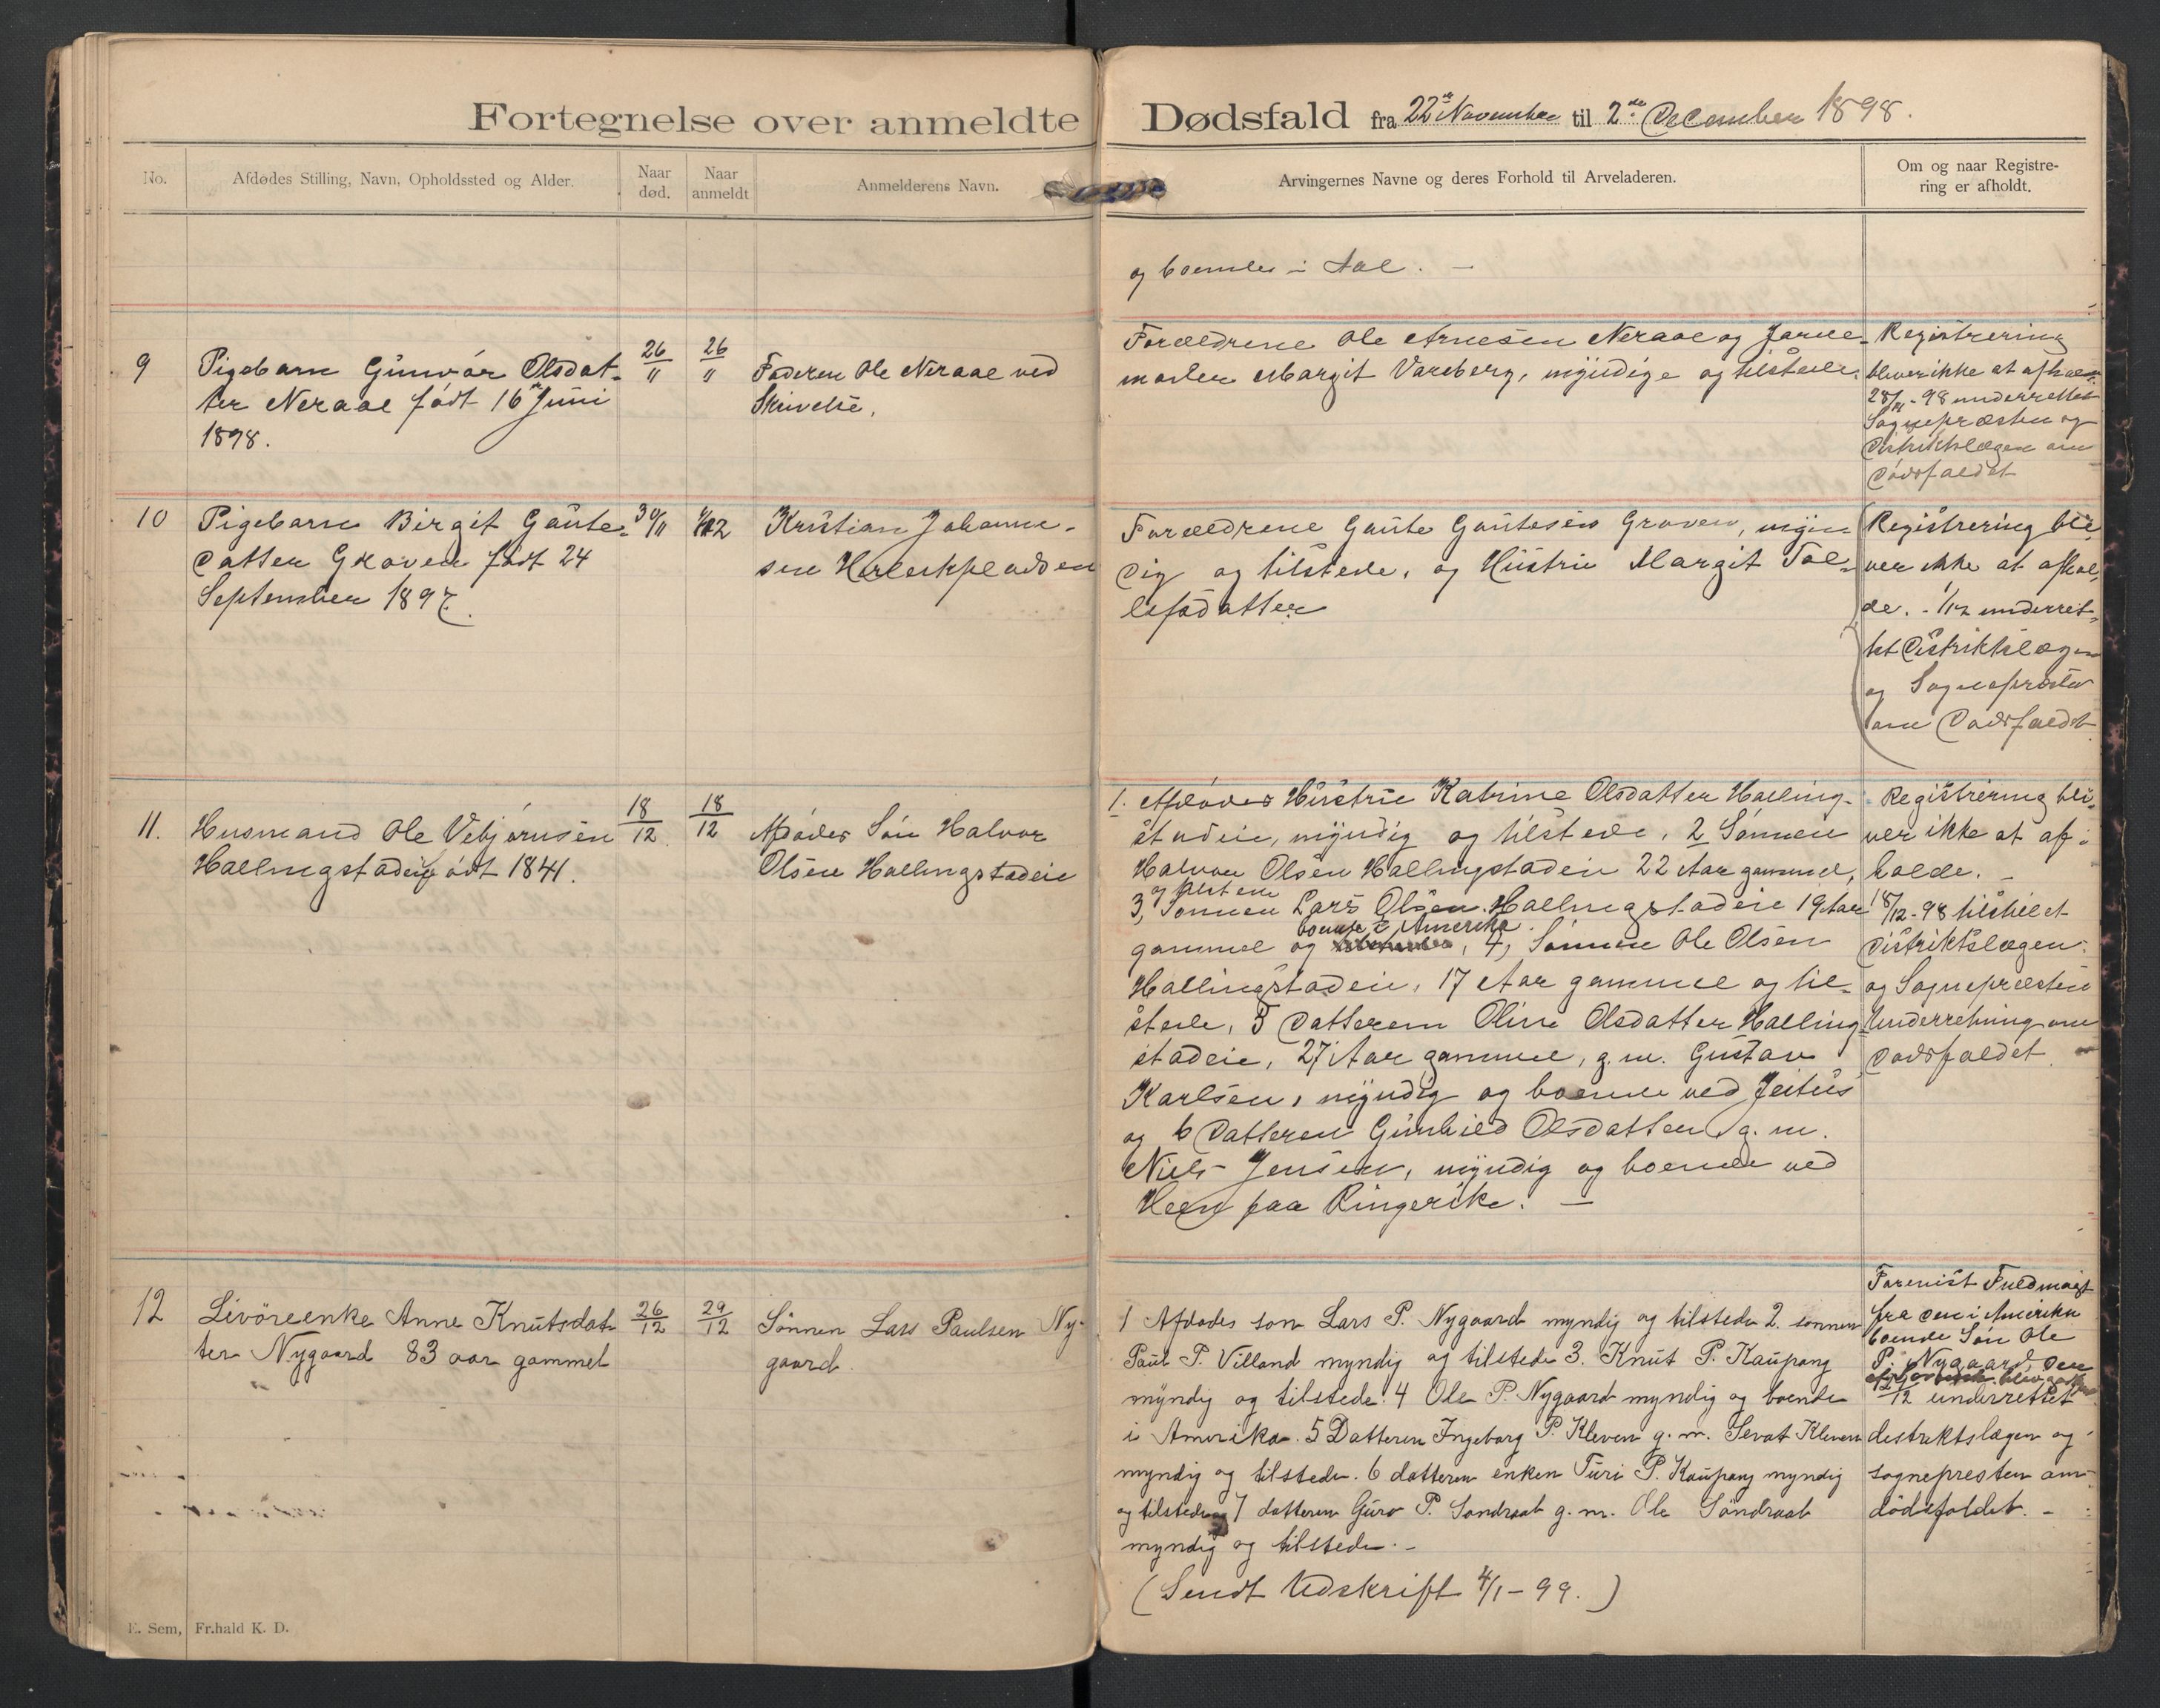 Fortegnelse over anmeldte Dødsfald fra 22de November til 2de December 1898.
No.
Afdødes Stilling, Navn, Opholdssted og Alder.
Naar død.
Naar anmeldt
Anmelderens Navn.
Arvingernes Navne og deres Forhold til Arveladeren.
Om og naar Registre-
ring er afholdt.
og boende i Aal. —
9
Pigebarn Gunvor Olsdat-
ter Neraal født 16de Juni
1898.
26/11
26/11
Faderen Ole Neraal ved
Skrivelse.
Forældrene Ole Arnesen Neraal og Jorde-
moder Margit Vareberg, myndige og tilstede.
Registrering
bliver ikke at afholde
28/11-98 underrettet
Sognepræsten og
Distriktslægen om
Dødsfaldet
10
Pigebarn Birgit Gaute-
datter Groven født 24
September 1897.
30/11
1/12
Kristian Johanne-
sen
Forældrene Gaute Gautesen Groven, myn-
dig og tilstede, og Hustru Margit Tol-
lefsdatter
Registrering bli-
ver ikke at afhol-
de. - 1/12 underret-
tet Distriktslægen
og Sognepræsten
om Dødsfaldet
11.
Husmand Ole Vebjørnsen
Hallingstadeie født 1841.
18/12
18/12
Afdødes Søn Halvor
Olsen Hallingstadeie
1. Afdødes Hustru Katrine Olsdatter Halling-
stadeie, myndig og tilstede, 2 Sønnen
Halvor Olsen Hallingstadeie 22 Aar gammel,
og tilstede
3, Sønnen Lars Olsen Hallingstadeie 19 Aar
boende i Amerika
gammel og , 4, Sønnen Ole Olsen
Hallingstadeie, 17 Aar gammel og til-
stede, 5 Datteren Oline Olsdatter Halling-
stadeie, 27 Aar gammel, g. m. Gustav
Karlsen, myndig og boende ved Jeilus
og 6 Datteren Gunhild Olsdatter g. m.
Niels Jensen, myndig og boende ved
Heen paa Ringerike. —
Registrering bli-
ver ikke at af-
holde. —
18/12-98 tilstillet
Distriktslægen
og Sognepræsten
Underretning om
Dødsfaldet
12
Livöreenke Anne Knutsdat-
ter Nygaard 83 aar gammel
26/12
29/12
Sönnen Lars Paulsen Ny-
gaard.
1 Afdödes sön Lars P. Nygaard myndig og tilstede 2. sönnen
Paul P. Villand myndig og tilstede 3. Knut P. Kaupang
myndig og tilstede. 4 Ole P. Nygaard myndig og boende
i Amerika. 5 Datteren Ingeborg P. Kleven g. m. Sevat Kleven
myndig og tilstede. 6 datteren enken Turi P. Kaupang myndig
og tilstede og 7 datteren Guro P. Sandraat g. m. Ole Söndraat
myndig og tilstede. -
(Sendt Udskrift 4/1-99.)
Forevist Fuldmagt
fra den i Amerika
boende Søn Ole
P. Nygaard, den
29/12 underrettet
destriktslægen og
sognepresten om
dödsfaldet. -
E. Sem, Fr.hald K. D.